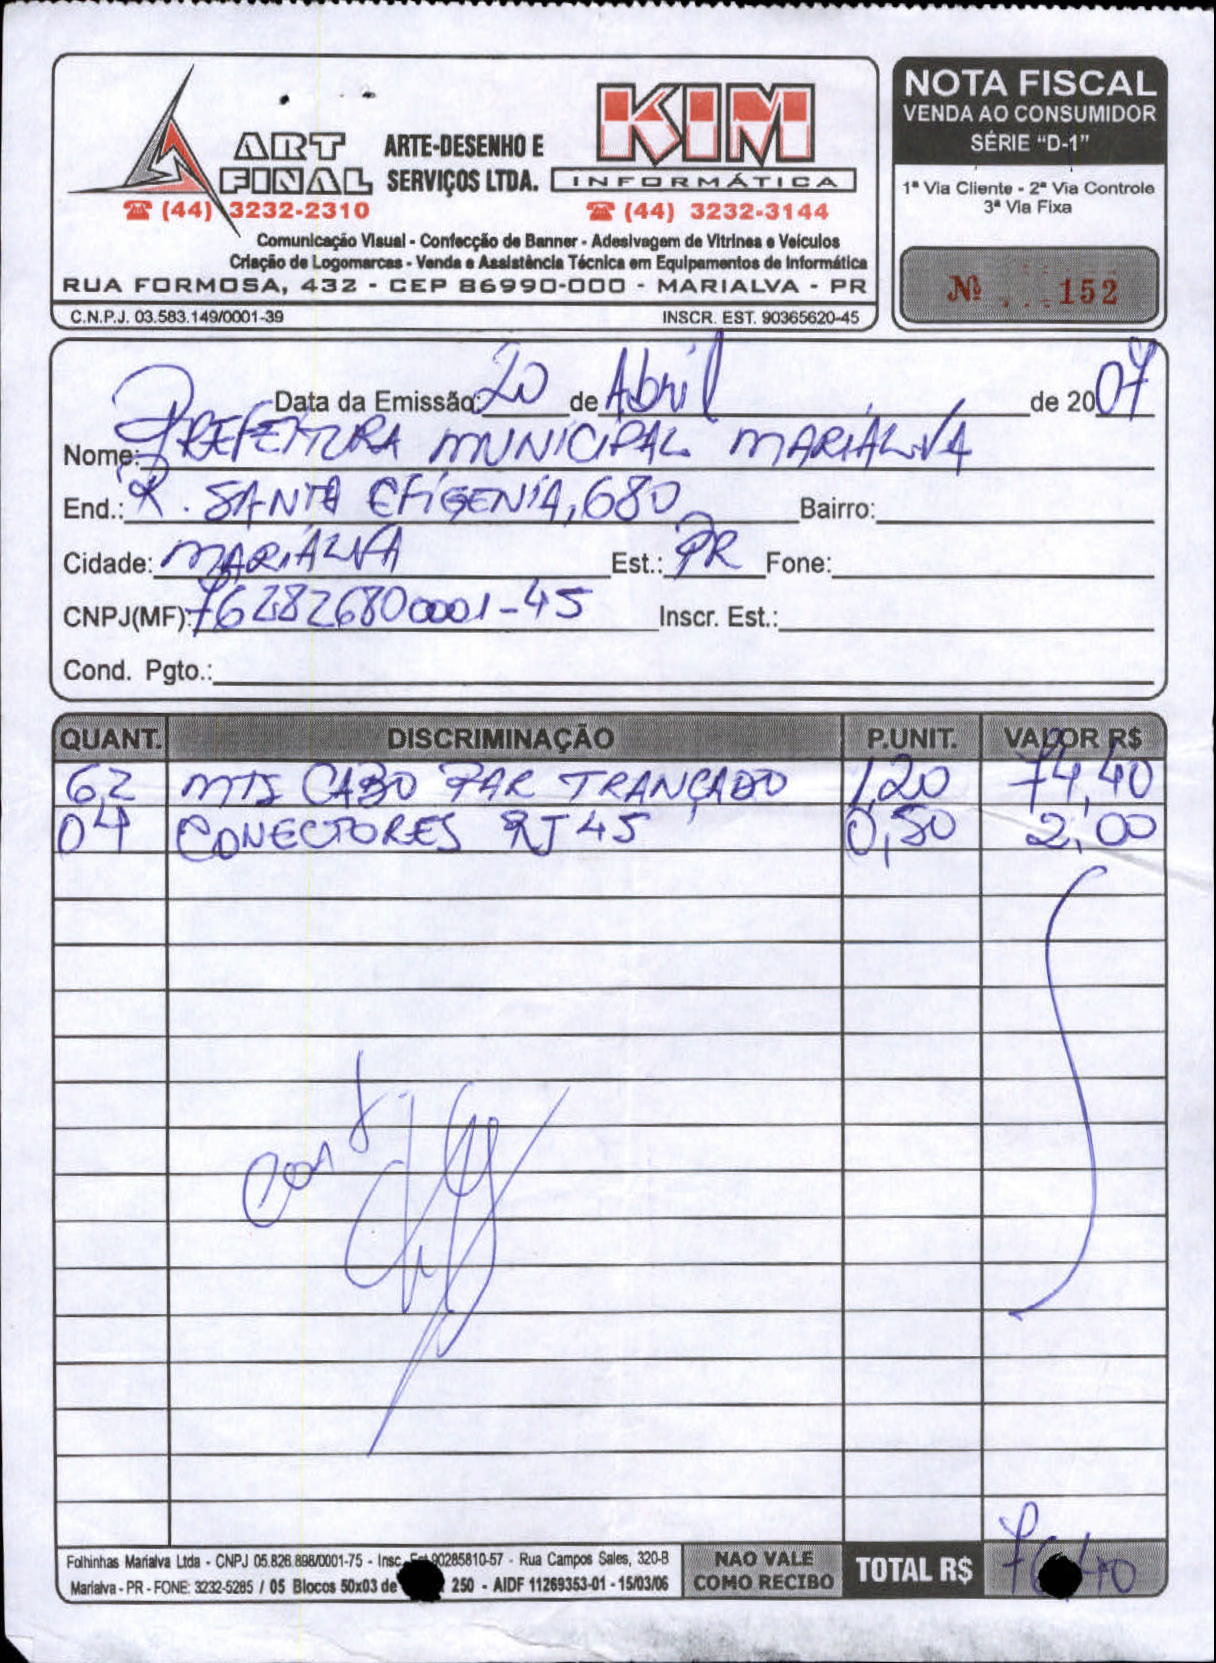 NOTA FISCAL
VENDA AO CONSUMIDOR
SÉRIE "D-1"
1ª Via Cliente - 2ª Via Controle
3ª Via Fixa
Nº 152
ART FINAL
ARTE-DESENHO E
SERVIÇOS LTDA.
KIM
INFORMÁTICA
☎ (44) 3232-2310
☎ (44) 3232-3144
Comunicação Visual - Confecção de Banner - Adesivagem de Vitrines e Veículos
Criação de Logomarcas - Venda e Assistência Técnica em Equipamentos de Informática
RUA FORMOSA, 432 - CEP 86990-000 - MARIALVA - PR
C.N.P.J. 03.583.149/0001-39 INSCR. EST. 90365620-45
Data da Emissão: 20 de Abril de 2007
Nome: PREFEITURA MUNICIPAL MARIALVA
End.: R. SANTA EFIGENIA, 680 Bairro:
Cidade: MARIALVA Est.: PR Fone:
CNPJ(MF): 762826800001-45 Inscr. Est.:
Cond. Pgto.:
QUANT. DISCRIMINAÇÃO P.UNIT. VALOR R$
62 MTS CABO PAR TRANÇADO 1,20 74,40
04 CONECTORES RJ 45 0,50 2,00
Folhinhas Marialva Ltda - CNPJ 05.826.898/0001-75 - Insc. Est 90285810-57 - Rua Campos Sales, 320-B
Marialva - PR - FONE: 3232-5285 / 05 Blocos 50x03 de 250 - AIDF 11269353-01 - 15/03/06
NAO VALE
COMO RECIBO
TOTAL R$ 76,40